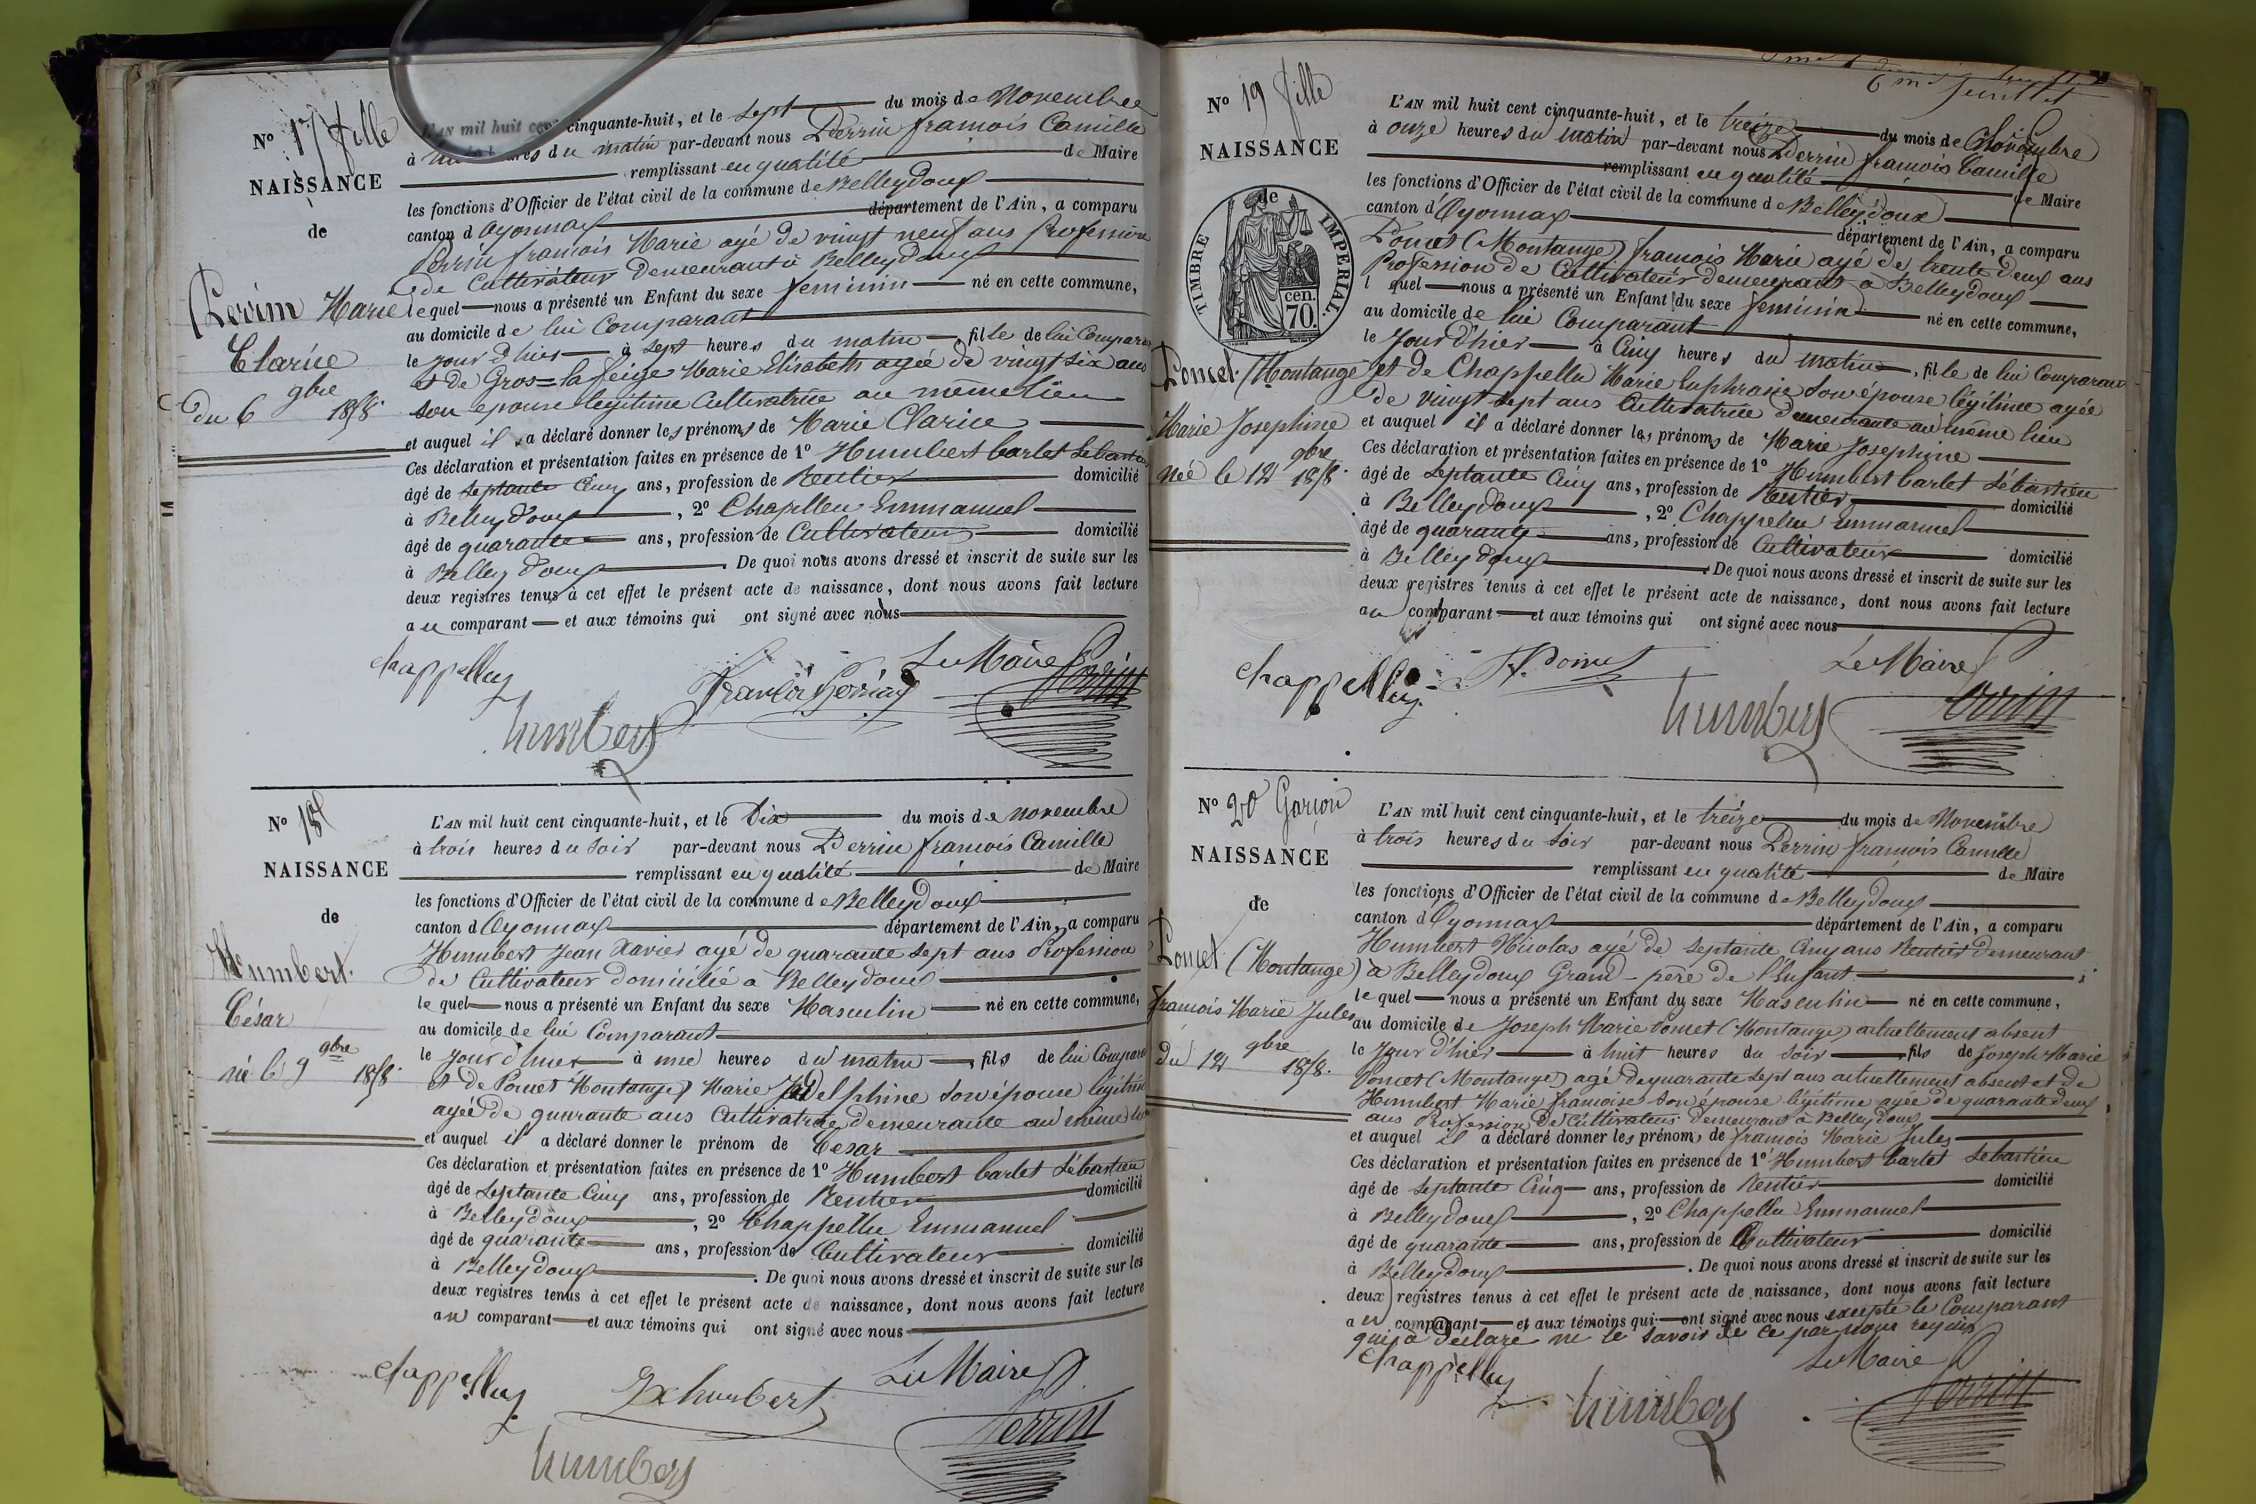 N° 17 fille
NAISSANCE
de
Perrin Marie
Clarice
du 6 9bre 1858.
L'AN mil huit cent cinquante-huit, et le sept du mois de Novembre
à heures du matin par-devant nous Perrin françois Camille
remplissant en qualité de Maire
les fonctions d'Officier de l'état civil de la commune de Belleydoux
canton d'Oyonnax département de l'Ain, a comparu
Perrin françois Marie agé de vingt neuf ans Profession
de Cultivateur Demeurant à Belleydoux
lequel nous a présenté un Enfant du sexe féminin né en cette commune,
au domicile de lui Comparant
le jour d'hier à sept heures du matin fille de lui Comparant
et de Gros=la feige Marie Elisabeth agée de vingt six ans
son épouse légitime Cultivatrice au même lieu
et auquel il a déclaré donner les prénoms de Marie Clarice
Ces déclaration et présentation faites en présence de 1° Humbert barlet Sébastien
âgé de septante Cinq ans, profession de Rentier domicilié
à Belleydoux, 2° Chapellu Emmanuel
âgé de quarante ans, profession de Cultivateur domicilié
à Belleydoux. De quoi nous avons dressé et inscrit de suite sur les
deux registres tenus à cet effet le présent acte de naissance, dont nous avons fait lecture
au comparant et aux témoins qui ont signé avec nous
Le Maire
chappelluy françois Perrin Perrin
humbert
N° 18
NAISSANCE
de
Humbert
César
né le 9 9bre 1858.
L'AN mil huit cent cinquante-huit, et le Dix du mois de novembre
à trois heures du soir par-devant nous Perrin françois Camille
remplissant en qualité de Maire
les fonctions d'Officier de l'état civil de la commune de Belleydoux
canton d'Oyonnax département de l'Ain, a comparu
Humbert Jean Xavier agé de quarante sept ans Profession
de Cultivateur domicilié à Belleydoux
lequel nous a présenté un Enfant du sexe Masculin né en cette commune,
au domicile de lui Comparant
le jour d'hier à une heures du matin, fils de lui Comparant
et de Poncet Montange) Marie Jh Delphine son épouse légitime
agée de quarante ans Cultivatrice demeurante au même lieu
et auquel il a déclaré donner le prénom de César
Ces déclaration et présentation faites en présence de 1° Humbert barlet Sébastien
âgé de Septante Cinq ans, profession de Rentier domicilié
à Belleydoux, 2° Chappellu Emmanuel
âgé de quarante ans, profession de Cultivateur domicilié
à Belleydoux. De quoi nous avons dressé et inscrit de suite sur les
deux registres tenus à cet effet le présent acte de naissance, dont nous avons fait lecture
au comparant et aux témoins qui ont signé avec nous
Le Maire
chappelluy JX humbert Perrin
humbert
6 me feuillet
N° 19 fille
NAISSANCE
TIMBRE IMPERIAL.
de
cen.
70.
Poncet (Montange
Marie Josephine
née le 12 9bre 1858.
L'AN mil huit cent cinquante-huit, et le treize du mois de Novembre
à onze heures du matin par-devant nous Perrin françois Camille
remplissant en qualité de Maire
les fonctions d'Officier de l'état civil de la commune de Belleydoux
canton d'Oyonnax département de l'Ain, a comparu
Poncet (Montange) françois Marie agé de trente deux ans
Profession de Cultivateur demeurant à Belleydoux
l quel nous a présenté un Enfant du sexe féminin né en cette commune,
au domicile de lui Comparant
le jour d'hier à Cinq heures du matin, fille de lui Comparant
et de Chappellu Marie Euphrasie son épouse légitime agée
de vingt sept ans Cultivatrice demeurante au même lieu
et auquel il a déclaré donner les prénoms de Marie Josephine
Ces déclaration et présentation faites en présence de 1° Humbert barlet Sébastien
âgé de septante Cinq ans, profession de Rentier domicilié
à Belleydoux, 2° Chappellu Emmanuel
âgé de quarante ans, profession de Cultivateur domicilié
à Belleydoux. De quoi nous avons dressé et inscrit de suite sur les
deux registres tenus à cet effet le présent acte de naissance, dont nous avons fait lecture
au comparant et aux témoins qui ont signé avec nous
Le Maire
chappelluy Poncet
humbert Perrin
N° 20 Garçon
NAISSANCE
de
Poncet (Montange)
françois Marie Jules
du 12 9bre 1858.
L'AN mil huit cent cinquante-huit, et le treize du mois de Novembre
à trois heures du soir par-devant nous Perrin françois Camille
remplissant en qualité de Maire
les fonctions d'Officier de l'état civil de la commune de Belleydoux
canton d'Oyonnax département de l'Ain, a comparu
Humbert Nicolas agé de septante Cinq ans Rentier demeurant
à Belleydoux Grand-père de l'Enfant
lequel nous a présenté un Enfant du sexe Masculin né en cette commune,
au domicile de Joseph Marie Poncet (Montange) actuellement absent
le jour d'hier à huit heures du soir fils de Joseph Marie
Poncet (Montange) agé de quarante sept ans actuellement absent et de
Humbert Marie françoise son épouse légitime agée de quarante deux
ans Profession de Cultivateur demeurant à Belleydoux
et auquel il a déclaré donner les prénoms de françois Marie Jules
Ces déclaration et présentation faites en présence de 1° Humbert barlet Sébastien
âgé de septante Cinq ans, profession de Rentier domicilié
à Belleydoux, 2° Chappellu Emmanuel
âgé de quarante ans, profession de Cultivateur domicilié
à Belleydoux. De quoi nous avons dressé et inscrit de suite sur les
deux registres tenus à cet effet le présent acte de naissance, dont nous avons fait lecture
au comparant et aux témoins qui ont signé avec nous excepté le Comparant
qui a déclaré ne le savoir de ce par nous requis
Le Maire
chappelluy
humbert Perrin